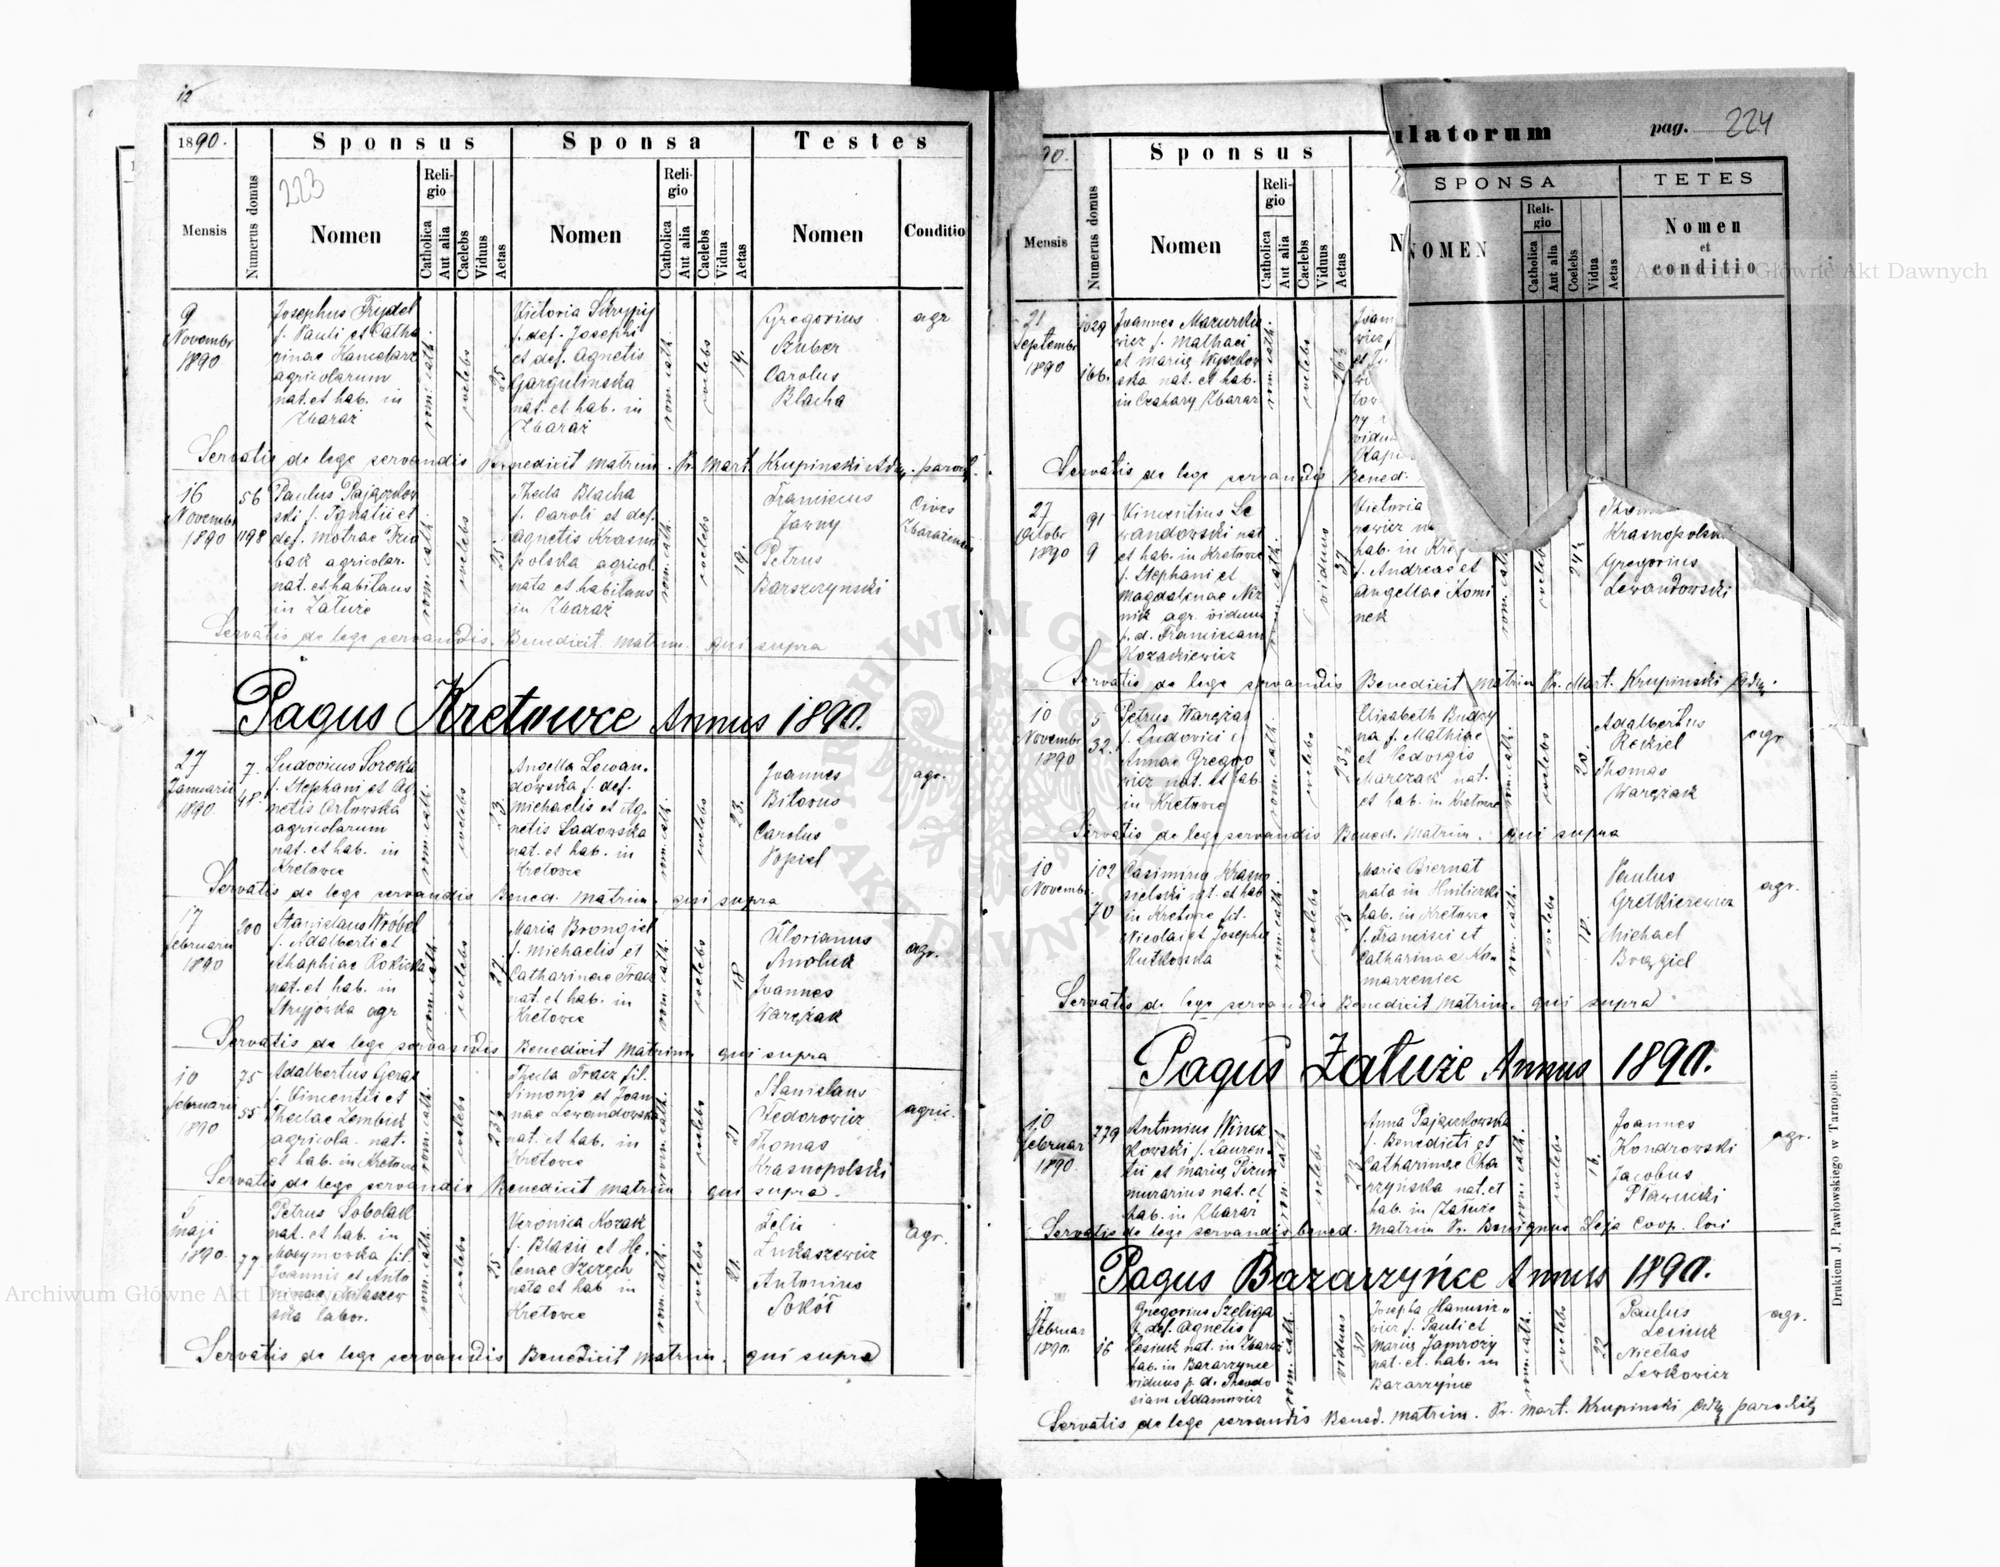 12
1890.
Sponsus
Sponsa
Testes
223
Mensis
Numerus domus
Nomen
Religio
Catholica
Aut alia
Caelebs
Viduus
Aetas
Nomen
Religio
Catholica
Aut alia
Caelebs
Vidua
Aetas
Nomen
Conditio
9
Novembr
1890
Josephus Frydel
f. Pauli et Catha
rinae Kancelarz
agricolarum
nat. et hab. in
Zbaraż
rom. cath.
coelebs
25
Victoria
f. def. Josephi
et def. Agnetis
Gargulinska
nat. et hab. in
Zbaraż
rom. cath.
coelebs
19.
Gregorius
Szuber
Carolus
Blacha
agr
Servatis de lege servandis Benedixit matrim. Kr. Mart. Krupinski Adm. paroch.
16
Novembr
1890
56
1198
Paulus Pajączkow
ski f. Ignatii et
def. Motrae
bak agricolar.
nat. et habitans
in Załuże
rom. cath.
coelebs
25
Thecla Blacha
f. Caroli et def.
Agnetis Krasno
polska agricol
nata et habitans
in Zbaraż
rom. cath.
coelebs
19.
Franciscus
Jarny
Petrus
Barszczynski
Cives
Zbarażenses
Servatis de lege servandis. Benedixit matrim. qui supra
Pagus Kretowce Annus 1890.
27
Januarii
1890.
7.
48.
Ludovicus Soroka
f. Stephani et Ag
netis Orłowska
agricolarum
nat. et hab. in
Kretowce
rom. cath.
coelebs
23.
Angella Lewan.
dowska f. def.
Michaelis et Ag.
netis Sadowska
nat. et hab. in
Kretowce
rom. cath.
coelebs
23.
Joannes
Bitous
Carolus
Popiel
agr.
Servatis de lege servandis Bened. Matrim. qui supra
17
februarii
1890
200
Stanislaus Wróbel
f. Adalberti et
Ahaphiae Rokicka
nat. et hab. in
Stryjówka agr
rom. cath.
coelebs
27.
Maria Brongiel
f. Michaelis et
Catharinae Tracz
nat. et hab. in
Kretowce
rom. cath.
coelebs
18
Florianus
Smoluk
Joannes
Warężak
agr.
Servatis de lege servandis Benedixit Matrim qui supra
10
februarii
1890
75
55
Adalbertus
f. Vincentii et
Theclae Zembik
agricola. nat.
et hab. in Kretowce
rom. cath.
coelebs
23½
Thecla Tracz fil.
Simonis et Joan
nae Lewandowska
nat. et hab. in
Kretowce
rom. cath.
coelebs
21
Stanislaus
Fedorowicz
Thomas
Krasnopolski
agric.
Servatis de lege servandis Benedixit matrim. qui supra.
5
maji
1890.
77.
Petrus Sobolak
nat. et hab. in
fil.
Joannis et Anto
ninae
ska labor.
rom. cath.
coelebs
25
Veronica Kozak
f. Blasii et He.
lenae Szezech
nata et hab in
Kretowce
rom. cath.
coelebs
21.
Felix
Łukaszewicz
Antonius
Sokół
agr.
Servatis de lege servandis Benedixit matrim. qui supra
ulatorum
pag. 224
90.
Sponsus
SPONSA
TETES
Mensis
Numerus domus
Nomen
Religio
Catholica
Aut alia
Caelebs
Viduus
Aetas
N
NOMEN
Religio
Catholica
Aut alia
Coelebs
Vidua
Aetas
Nomen
et
conditio
21
Septembr
1890
1029
166.
Joannes Mazurkie
wicz f. Mathaei
et Marię Wyszkow
ska nat. et hab.
in Czahary Zbaraż
rom. cath.
coelebs
26½
Joan
wicz f
Servatis de lege servandis Bened.
27
Octobr
1890
91
9
Vincentius Le
wandowski nat
et hab. in Kretowce
f. Stephani et
Magdalenae Niz
nik agr. viduus
p. d. Franciscam
Kozakiewicz
rom. cath.
viduus
37
Victoria
hab. in
f. Andreae et
Angellae Komi
nek
rom. cath.
coelebs
24½
Krasnopolski
Gregorius
Lewandowski
Servatis de lege servandis Benedixit matrim Kr. Mart. Krupinski Adm.
10
Novembr
1890
5
32.
Petrus Warężak
f. Ludovici et
Annae Gregoro
wicz nat. et hab.
in Kretowce
rom. cath.
coelebs
23½
Elisabeth Budzy
na f. Mathiae
et Hedvigis
Marczak nat.
et hab. in Kretowce
rom. cath.
coelebs
20.
Adalbertus
Rekiel
Thomas
Warężak
agr
Servatis de lege servandis Bened. Matrim. qui supra
10
Novembr.
102
70
Casimirus Krasno
sielski nat. et hab
in Kretowce fil.
Nicolai et Josepha
Rutkowska
rom. cath.
coelebs
25
Maria Biernat
nata in
hab. in Kretowce
f. Francisci et
Catharinae Ko.
marzeniec
rom. cath.
coelebs
18.
Paulus
Gretkierewicz
Michael
Brągiel
agr.
Servatis de lege servandis Benedixit Matrim. qui supra
Pagus Załuże Annus 1890.
10
februar
1890.
779
Antonius Wincz
kowski f. Lauren
tii et Marię Pizun
murarius nat. et
hab. in Zbaraż
rom. cath.
coelebs
23
Anna Pajączkowska
f. Benedicti et
Catharinae Cho
rzyńska nat. et
hab. in Załuże
rom. cath.
coelebs
16.
Joannes
Kondrowski
Jacobus
agr.
Servatis de lege servandis bened. matrim Kr. Benignus Zieja Coop. loci
Pagus Bazarzyńce Annus 1890.
17
februar
1890.
16
Gregorius Szeliga
f. def. Agnetis
Lesiuk nat. in Zbaraż
hab. in Bazarzynce
viduus p. d. Theodo
siam Adamowicz
rom. cath.
viduus
30
Josepha Hanusie
wicz f. Pauli et
Mariae Jamrozy
nat. et. hab. in
Bazarzyńce
rom. cath.
coelebs
22
Paulus
Lesiuk
Nicetas
Lewkowicz
agr.
Servatis de lege servandis Bened. Matrim. Kr. Mart. Krupinski Adm. parochię
Drukiem J. Pawłowskiego w Tarnopolu.
Archiwum Główne Akt Dawnych
Archiwum Główne Akt Dawnych
ARCHIWUM GŁÓWNE AKT DAWNYCH